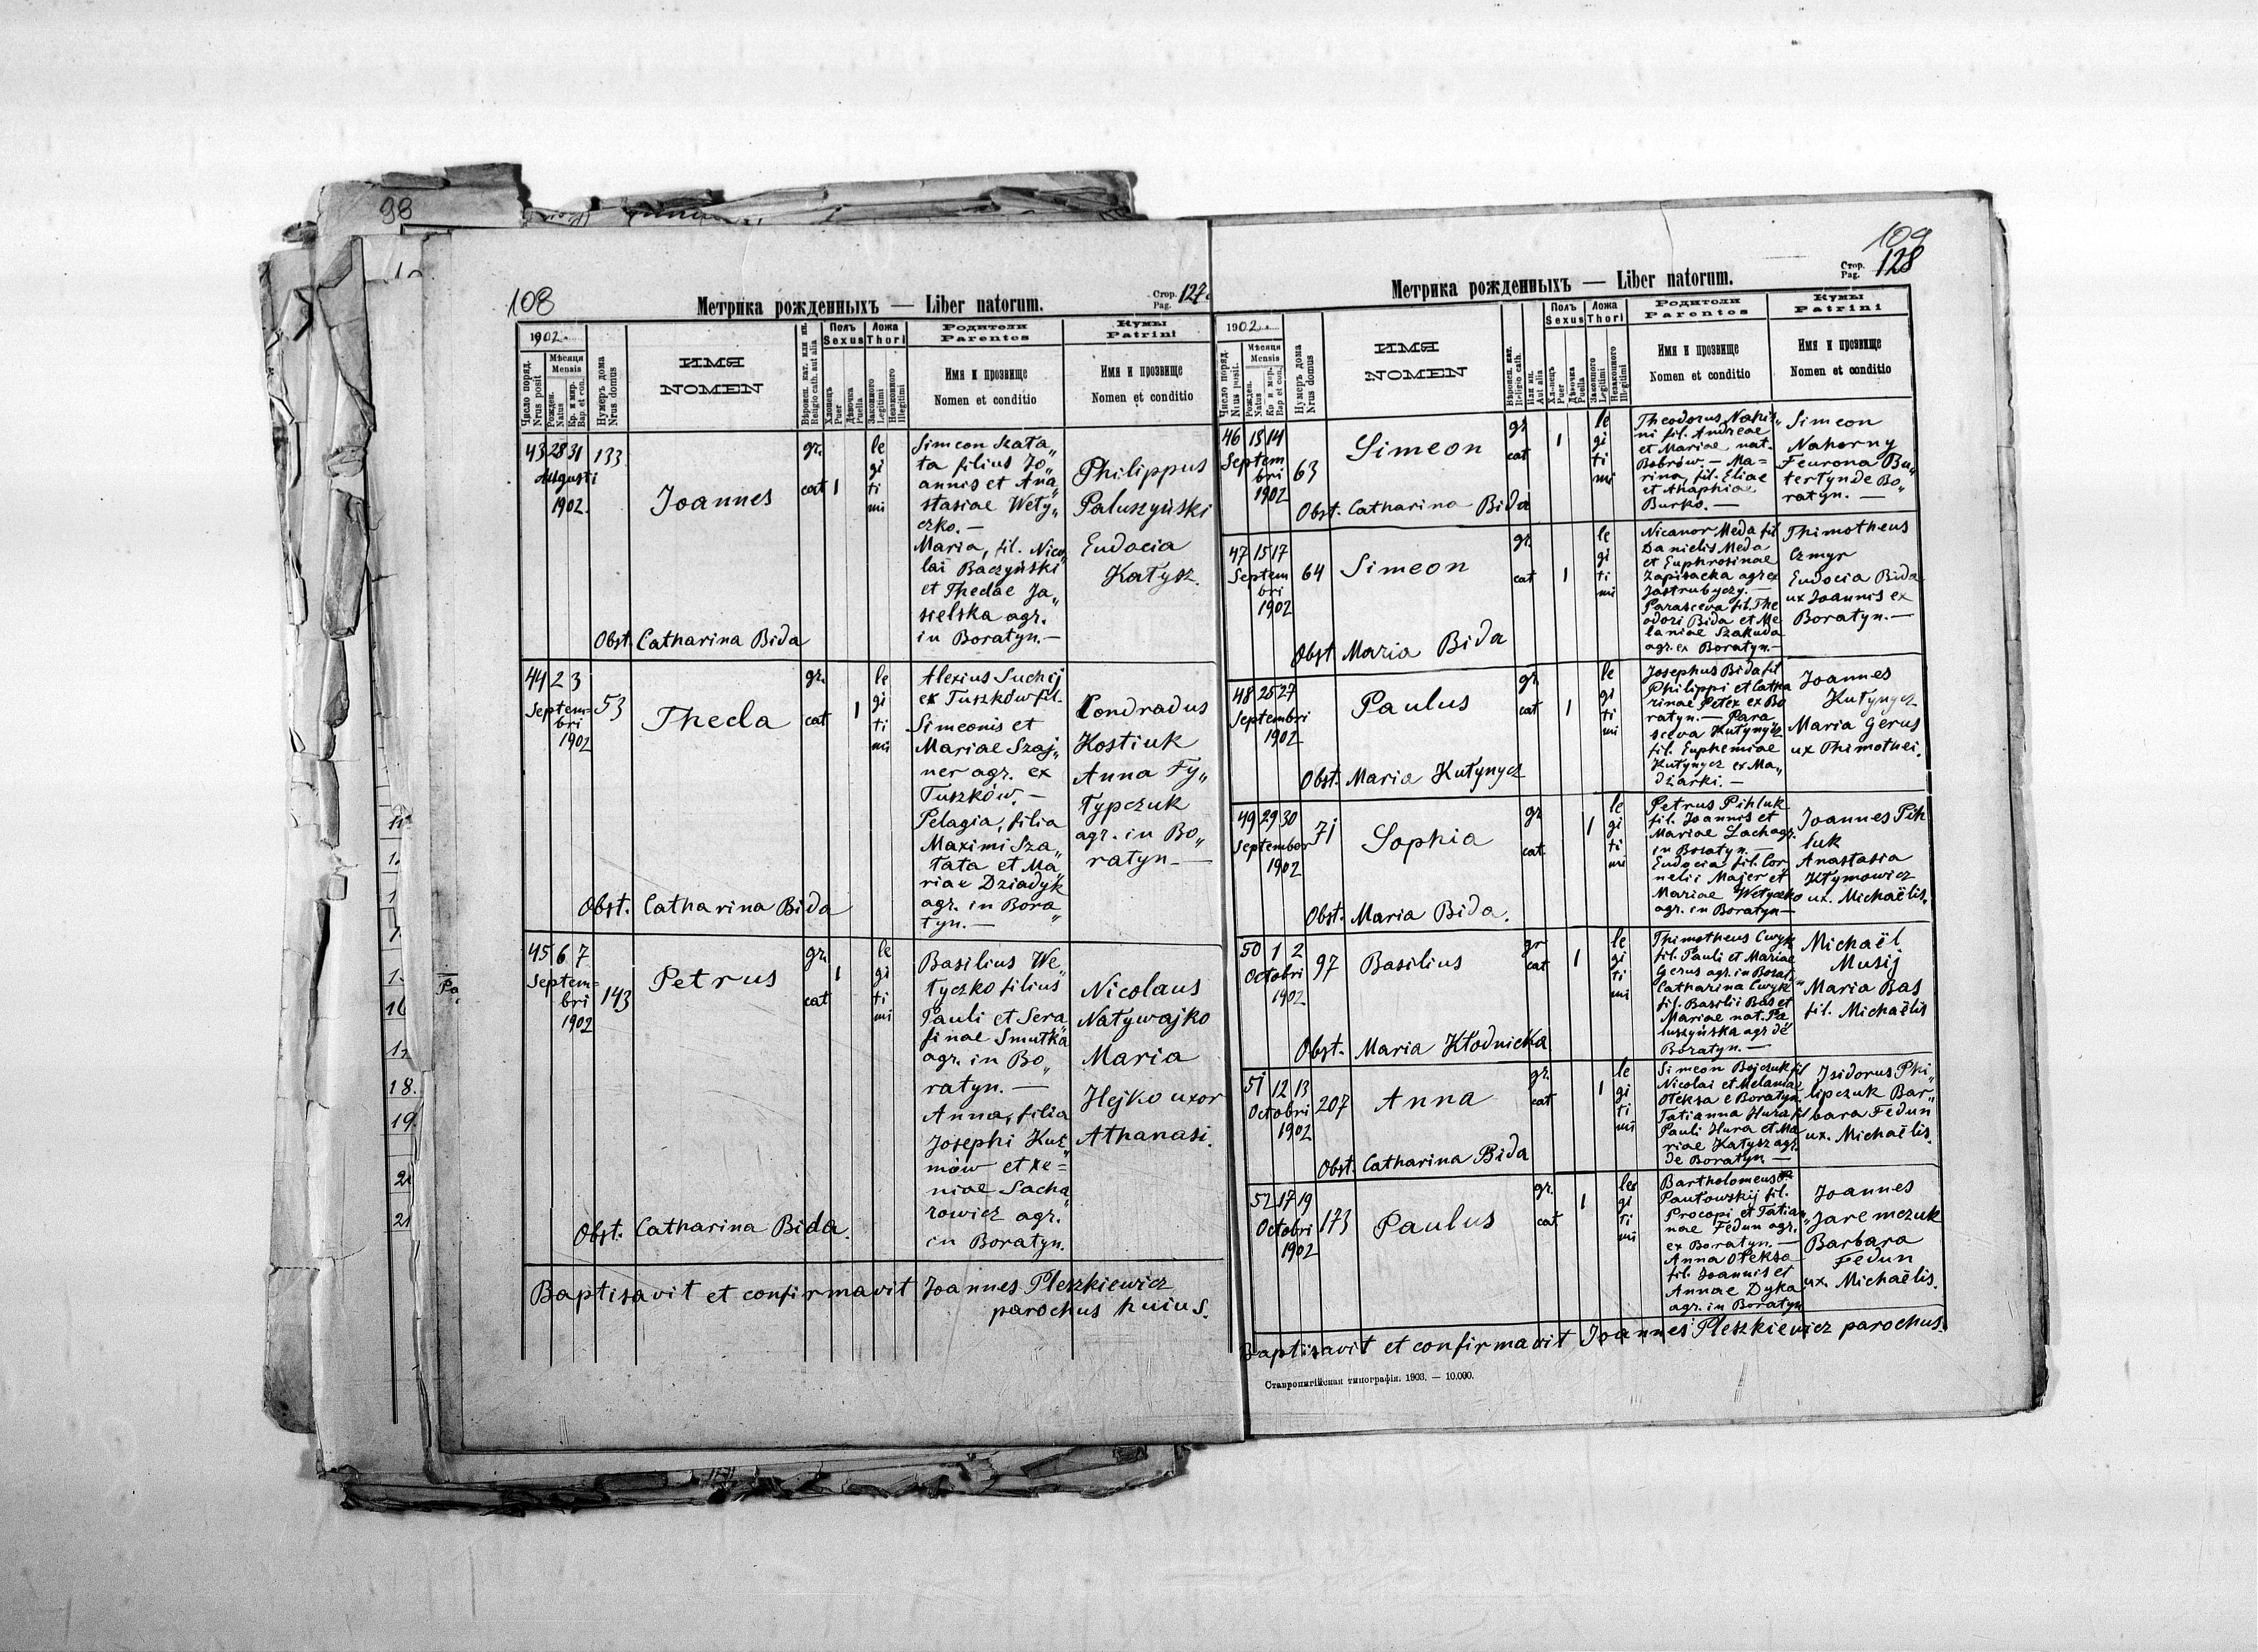 98
108
Метрика рожденныхъ — Liber natorum.
Стор. Pag. 127.
1902
Число поряд. Nrus posit
Мѣсяця Mensis
Рожден. Natus
Кр. и мѵр. Bap. et con.
Нумеръ дома Nrus domus
ИМЯ
NOMEN
Вѣроисп. кат. или ин. Religio cath. aut alia
Полъ
Sexus
Хлопецъ Puer
Дѣвочка Puella
Ложа
Thori
Законного Legitimi
Незаконного Illegitimi
Родители
Parentes
Имя и прозвище
Nomen et conditio
Кумы
Patrini
Имя и прозвище
Nomen et conditio
43 28 31 133
Augusti
1902.
Joannes
gr. cat 1
le gi ti mi
Simeon Szata„
ta filius Jo„
annis et Ana„
stasiae Wety„
czko. —
Maria, fil. Nico„
lai Baczyński
et Theclae Ja„
sielska agr.
in Boratyn. —
Philippus
Paluszyński
Eudocia
Katysz.
Obst. Catharina Bida
44 2 3 53
Septem=
bri
1902
Thecla
gr. cat 1
le gi ti mi
Alexius Suchij
ex Tuszków fil.
Simeonis et
Mariae Szaj„
ner agr. ex
Tuszków. —
Pelagia, filia
Maximi Sza„
tata et Ma„
riae Dziadyk
agr. in Bora„
tyn. —
Condradus
Kostiuk
Anna Ty„
typczuk
agr. in Bo„
ratyn. —
Obst. Catharina Bida
45 6 7 143
Septem=
bri
1902
Petrus
gr. cat 1
le gi ti mi
Basilius We„
tyczko filius
Pauli et Sera„
finae Smutka
agr. in Bo„
ratyn. —
Anna, filia
Josephi Kuź„
mów et Xe=
niae Sacha„
rowicz agr.
in Boratyn.
Nicolaus
Natywajko
Maria
Hejko uxor
Athanasi.
Obst. Catharina Bida.
Baptisavit et confirmavit Joannes Pleszkiewicz
parochus huius.
109
Метрика рожденныхъ — Liber natorum.
Стор. Pag. 128
1902
Число поряд. Nrus posit.
Мѣсяця Mensis
Рожден. Natus
Кр и мѵр. Bap et con.
Нумеръ дома Nrus domus
ИМЯ
NOMEN
Вѣроисп. кат. Religio cath.
Или ин. Aut alia
Полъ
Sexus
Хлопецъ Puer
Дѣвочка Puella
Ложа
Thori
Законного Legitimi
Незаконного Illegitimi
Родители
Parentes
Имя и прозвище
Nomen et conditio
Кумы
Patrini
Имя и прозвище
Nomen et conditio
46 13 14 63
Septem
bri
1902
Simeon
gr cat 1
le gi ti mi
Theodorus Nahir„
ni fil. Andreae
et Mariae nat.
Bobrów. — Ma=
rina, fil. Eliae
et Ahaphiae
Burko. —
Simeon
Nahorny
Feurona Bu„
tertyn de Bo„
ratyn. —
Obst. Catharina Bida
47 15 17 64
Septem
bri
1902
Simeon
gr. cat 1
le gi ti mi
Nicanor Meda fil
Danielis Meda
et Euphrosinae
Zapisacka agr ex
Jastrubyczy. —
Parasceva fil. The
odori Bida et Me
laniae Szakuda
agr. ex Boratyn. —
Thimotheus
Czmyr
Eudocia Bida
ux Joannis ex
Boratyn. —
Obst Maria Bida
48 25 27
Septembri
1902
Paulus
gr. cat 1
le gi ti mi
Josephus Bida fil
Philippi et Catha
rinae Petex ex Bo
ratyn. — Para
sceva Kutynycz
fil. Euphemiae
Kutynycz ex Ma„
dziarki. —
Joannes
Kutynycz
Maria Gerus
ux Thimothei.
Obst. Maria Kutynycz
49 29 30 71
September
1902
Sophia
gr cat. 1
le gi ti mi
Petrus Pihluk
fil. Joannis et
Mariae Lach agr.
in Boratyn. —
Eudocia fil. Cor
nelii Majer et
Mariae Wetyczko
agr. in Boratyn —
Joannes Pih
luk
Anastasia
Kłymowicz
ux. Michaëlis.
Obst. Maria Bida.
50 1 2 97
Octobri
1902
Basilius
gr cat 1
le gi ti mi
Thimotheus Cwyk
fil. Pauli et Mariae
Gerus agr. in Borat.
Catharina Cwyk
fil. Basilii Bas et
Mariae nat. Pa
luszyńska agr de
Boratyn. —
Michaël
Musij
Maria Bas
fil. Michaëlis
Obst. Maria Kłodnicka
51 12 13 207
Octobri
1902
Anna
gr. cat 1
le gi ti mi
Simeon Bojczuk fil
Nicolai et Melaniae
Ołeksa e Boratyn.
Tatianna Hura fil
Pauli Hura et Ma
riae Katysz agr.
de Boratyn —
Isidorus Phi„
lipczuk Bar„
bara Fedun
ux. Michaëlis.
Obst. Catharina Bida
52 17 19 173
Octobri
1902
Paulus
gr. cat 1
le gi ti mi
Bartholomeus
Pautowskij fil.
Procopi et Tatian„
nae Fedun agr.
ex Boratyn. —
Anna Ołeksa
fil. Joannis et
Annae Dyka
agr. in Boratyn
Joannes
Jaremczuk
Barbara
Fedun
ux. Michaëlis.
Baptisavit et confirmavit Joannes Pleszkiewicz parochus.
Ставропигійская типографія. 1903. — 10.000.